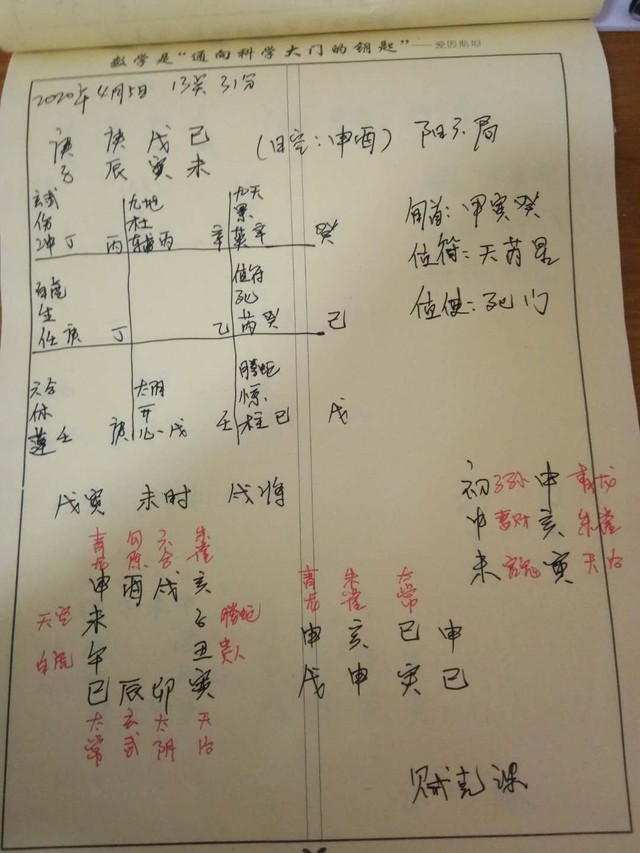 数学是“通向科学大门的钥匙”——爱因斯坦
2020年4月5日 13点31分
庚 庚 戊 己
子 辰 寅 未
(日空：申酉) 阳六局
玄武 九地 九天
伤 杜 景
冲丁 丙 辅丙 辛 英辛 癸
旬首：甲寅癸
值符：天芮星
值使：死门
白虎 值符
生 死
任庚 丁 乙 芮癸 己
六合 太阴 腾蛇
休 开 惊
蓬壬 庚 心戊 壬 柱己 戊
戊寅 未时 戌将
初 子孙 申 青龙
中 妻财 亥 朱雀
末 官鬼 寅 天后
青龙 勾陈 六合 朱雀
申 酉 戌 亥
天空 未 子 腾蛇
白虎 午 丑 贵人
巳 辰 卯 寅
太常 玄武 太阴 天后
青龙 朱雀 太常
申 亥 巳 申
戊 申 寅 巳
贼克课